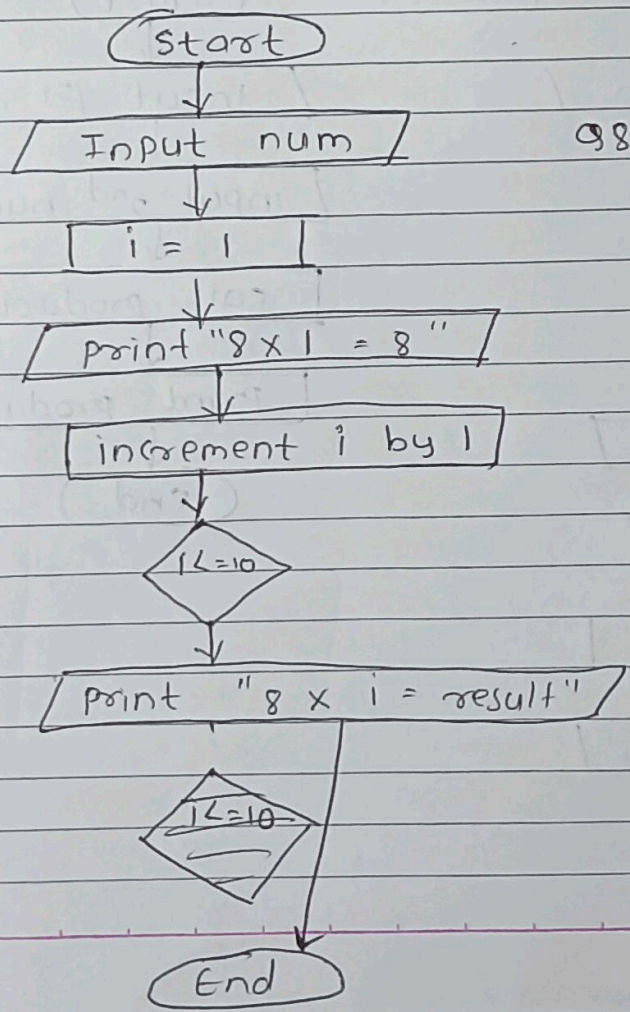 Start
Input num
98
i = 1
print "8 x 1 = 8"
increment i by 1
i<=10
print "8 x i = result"
i<=10
End